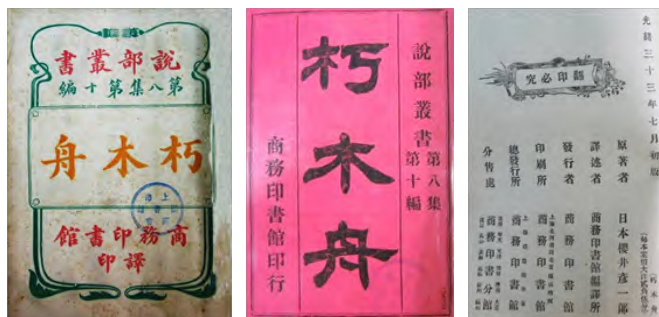 說部叢書
第八集第十編
朽木舟
商務印書館
譯印
說部叢書
第八集
第十編
朽木舟
商務印書館印行
光緒三十三年七月初版
翻印必究
原著者 日本櫻井彥一郎
譯述者 商務印書館編譯所
發行者 商務印書館
印刷所 商務印書館
總發行所 商務印書館
分售處 商務印書分館